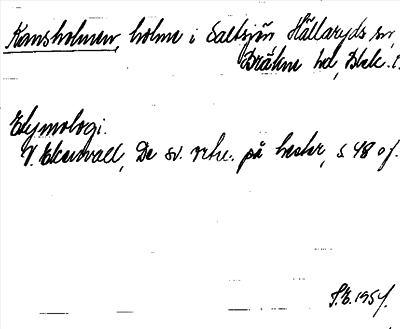 Kamsholmen, holme i Saltsjön Hällaryds sn,
Bräkne hd, Blek. l.
Etymologi.
V. Ekenvall, De sv. ortn. på hester, s 48 o f.
S.E. 1954.